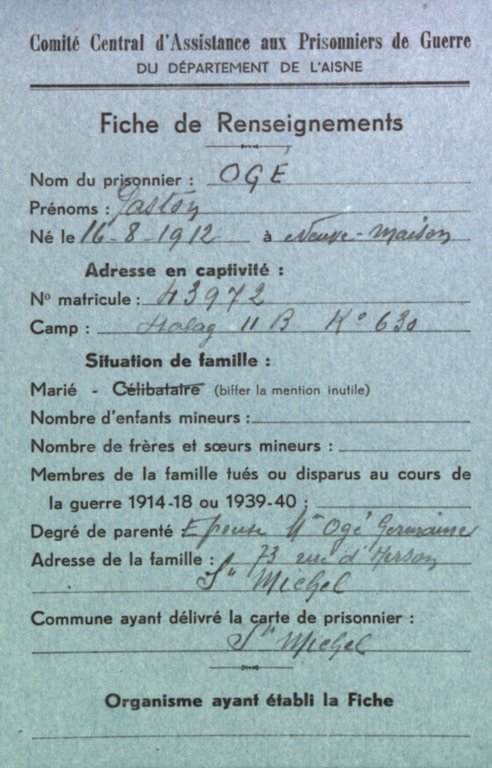 Comité Central d'Assistance aux Prisonniers de Guerre
DU DÉPARTEMENT DE L'AISNE
Fiche de Renseignements
Nom du prisonnier : OGE
Prénoms : Gaston
Né le 16-8-1912 à Neuve-Maison
Adresse en captivité :
Nº matricule : 43972
Camp : Stalag II B Kº 630
Situation de famille :
Marié - Célibataire (biffer la mention inutile)
Nombre d'enfants mineurs :
Nombre de frères et sœurs mineurs :
Membres de la famille tués ou disparus au cours de
la guerre 1914-18 ou 1939-40 :
Degré de parenté Epouse Mme Ogé Germaine
Adresse de la famille : 73 rue d'Hirson
St Michel
Commune ayant délivré la carte de prisonnier :
St Michel
Organisme ayant établi la Fiche